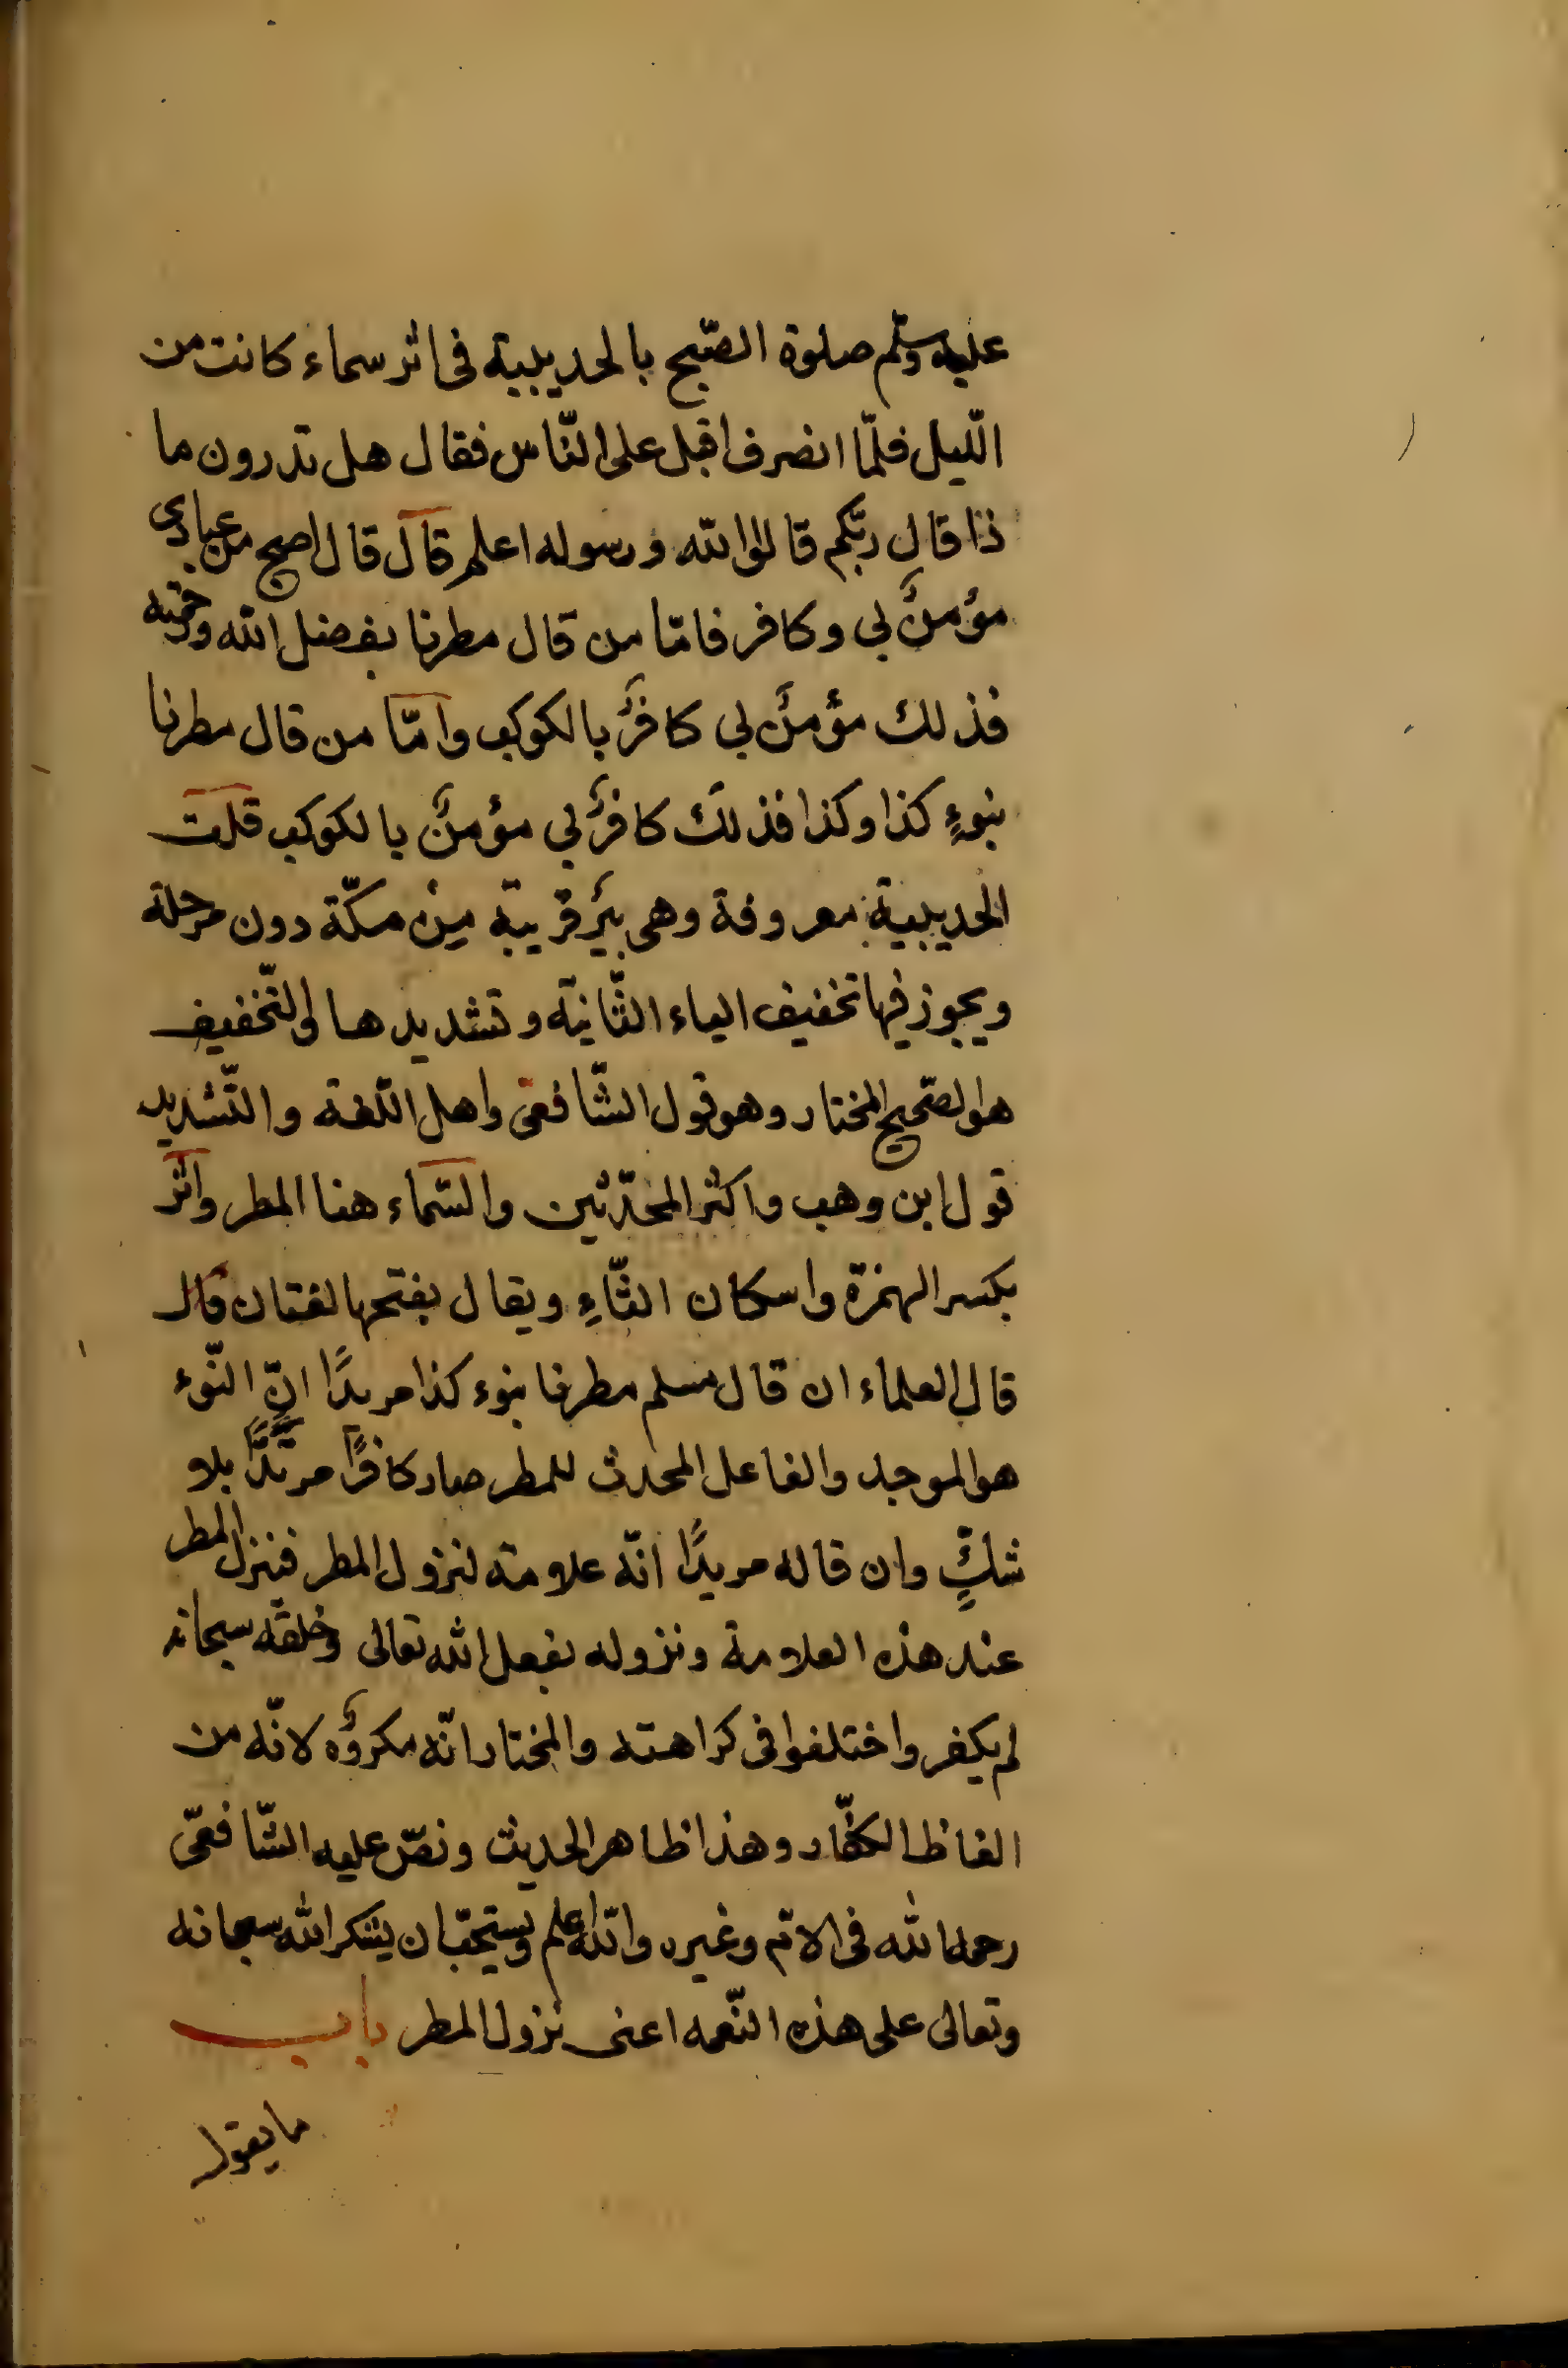 عليه وسلّم صلوة الصّبح بالحديبية فى اثر سماء كانت من
الّليل فلمّا انصرف اقبل على النّاس فقال هل تدرون ما
ذا قال ربّكم قالوا الله ورسوله اعلم قال قال اصبح من عبادى
مؤمنٌ لى وكافر فامّا من قال مطرنا بفضل الله ورحمته
فذلك مؤمنٌ لى كافرٌ بالكوكب وامّا من قال مطرنا
بنوءٍ كذا وكذا فذلك كافرٌ لى مؤمنٌ بالكوكب قلت
الحديبية معروفة وهى بئرٌ قريبة مِنْ مكّة دون مرحلة
ويجوز فيها تخفيف الياء الثّانية وتشديدها والتّخفيف
هو الصّحيح المختار وهو قول الشّافعىّ واهل اللّغة والتّشديد
قول ابن وهب واكثر المحدّثين والسّماء هنا المطر واثر
بكسر الهمزة واسكان الثّاءِ ويقال بفتحها لغتان قال
قال العلماء ان قال مسلم مطرنا بنوء كذا مريدًا انّ النّوء
هو الموجد والفاعل المحدث للمطر صار كافرًا مرتدًّا بلا
شكٍّ وان قاله مريدًا انّه علامة لنزول المطر فينزل المطر
عند هذه العلامة ونزوله بفعل الله تعالى وخلقه سبحانه
لم يكفر واختلفوا فى كراهته والمختار انّه مكروه لانّه من
الفاظ الكفّار وهذا ظاهر الحديث ونصّ عليه الشّافعىّ
رحمه الله فى الامّ وغيره والله اعلم ويستحبّ ان يشكر الله سبحانه
وتعالى على هذه النّعمه اعنى نزول المطر باب
ما يقول